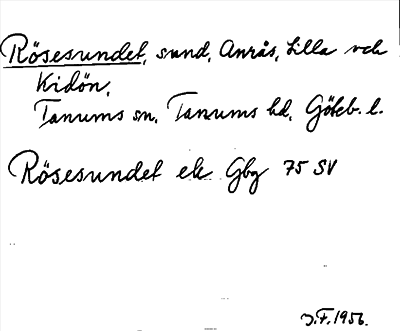 Rösesundet, sund, Anrås, Lilla och
Kidön,
Tanums sn, Tanums hd, Göteb. l.
Rösesundet ek Gbg 75 SV
J.F. 1956.